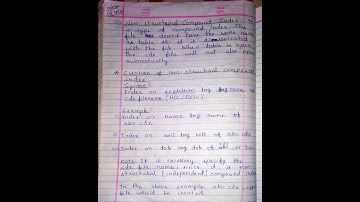 Non structural compound Index: It is
a type of compound index. This
file doesn't have the same name
as table so it is not associated
with the file when table is open,
the cdx file will not also open
automatically.
* Creation of non-structural compound
Index
Syntax
Index on expression tag tag name of
cdx filename [ASC/DESC]
Example:
Index on name tag name of
abc.cdx
Index on roll tag roll of abc.cdx
Index on dob tag dob of abc.cdx
note: It is necessary specify the
cdx file name, since it is non
structural (independent) compound index
In the above example abc.cdx
file would be created